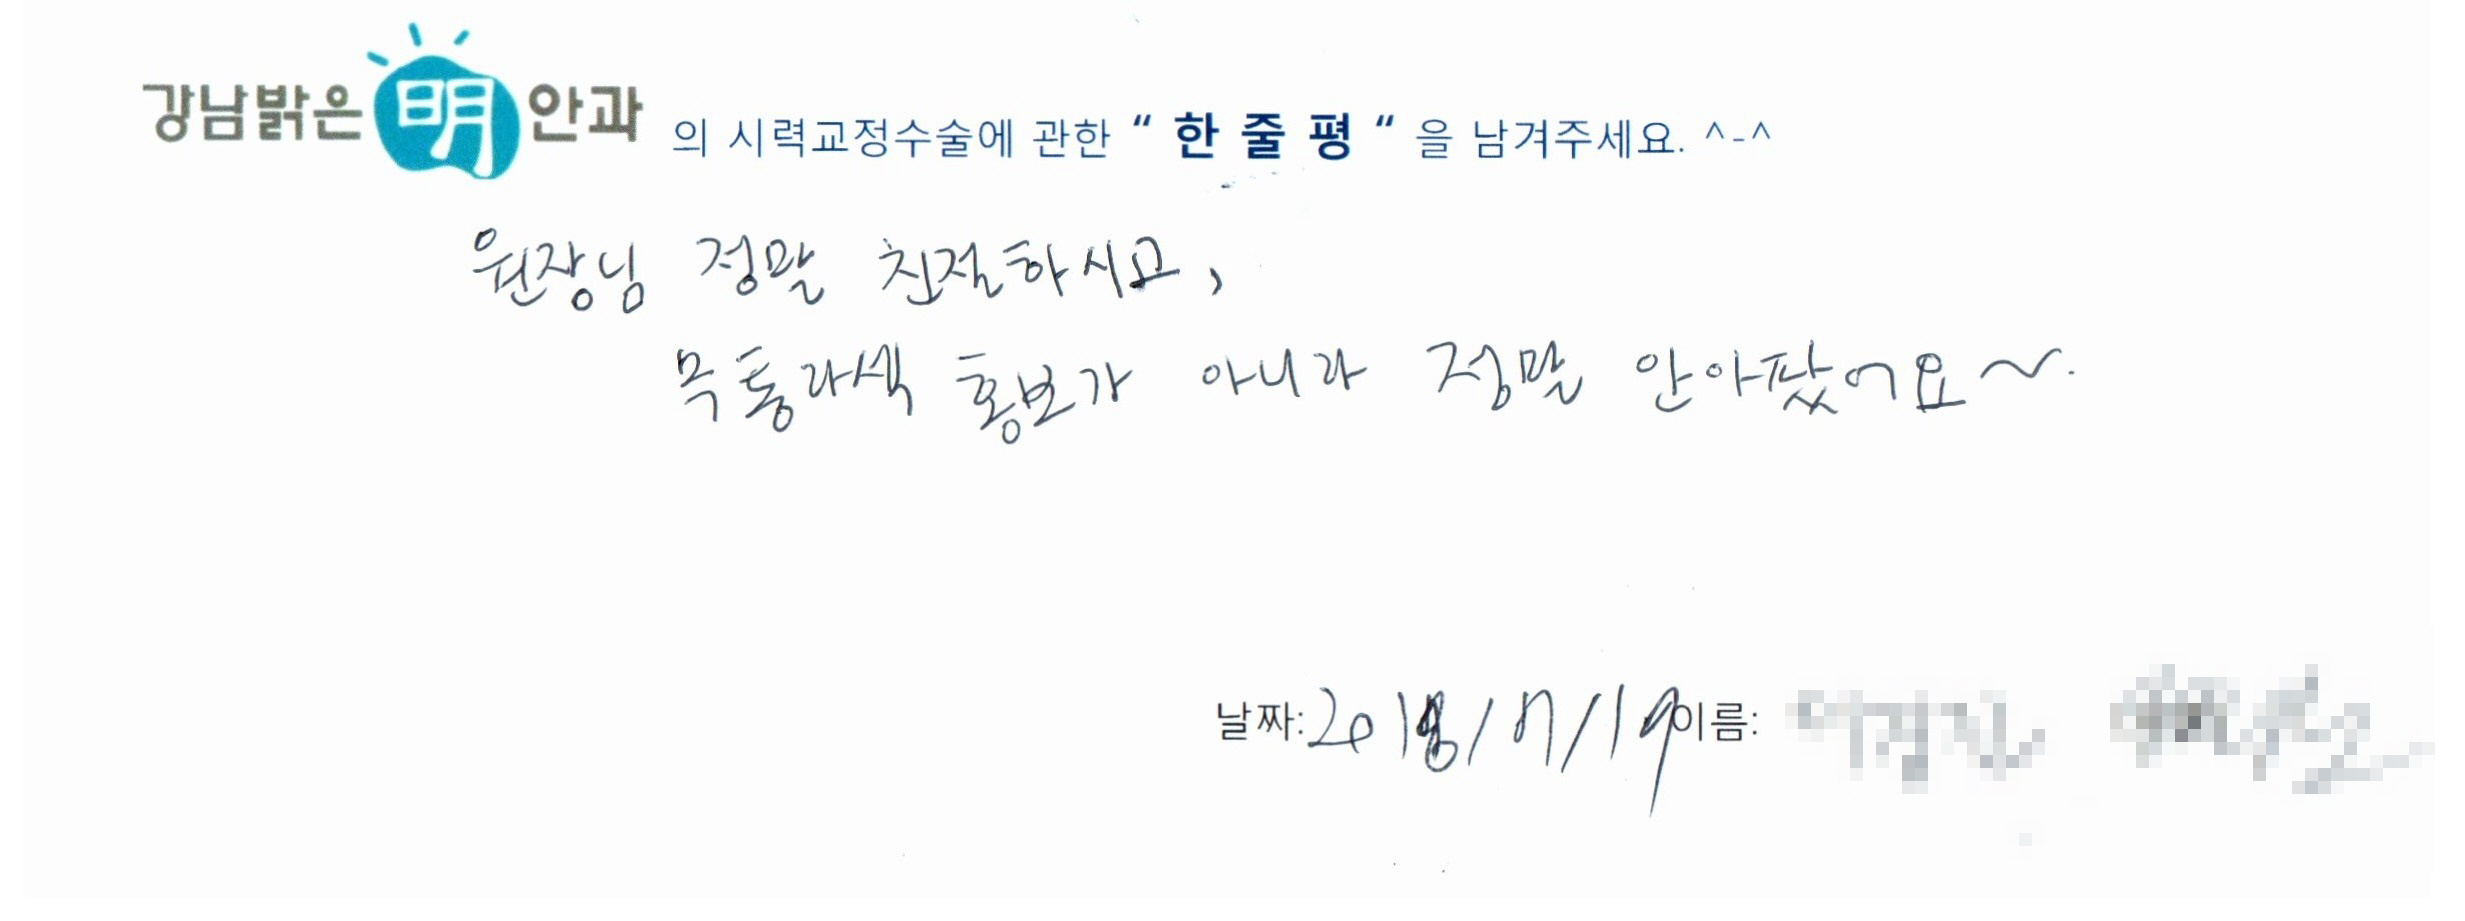 강남밝은 明 안과 의 시력교정수술에 관한 “ 한 줄 평 “ 을 남겨주세요. ^-^
원장님 정말 친절하시고,
무통라섹 홍보가 아니라 정말 안아팠어요~.
날짜: 2018/7/19 이름: